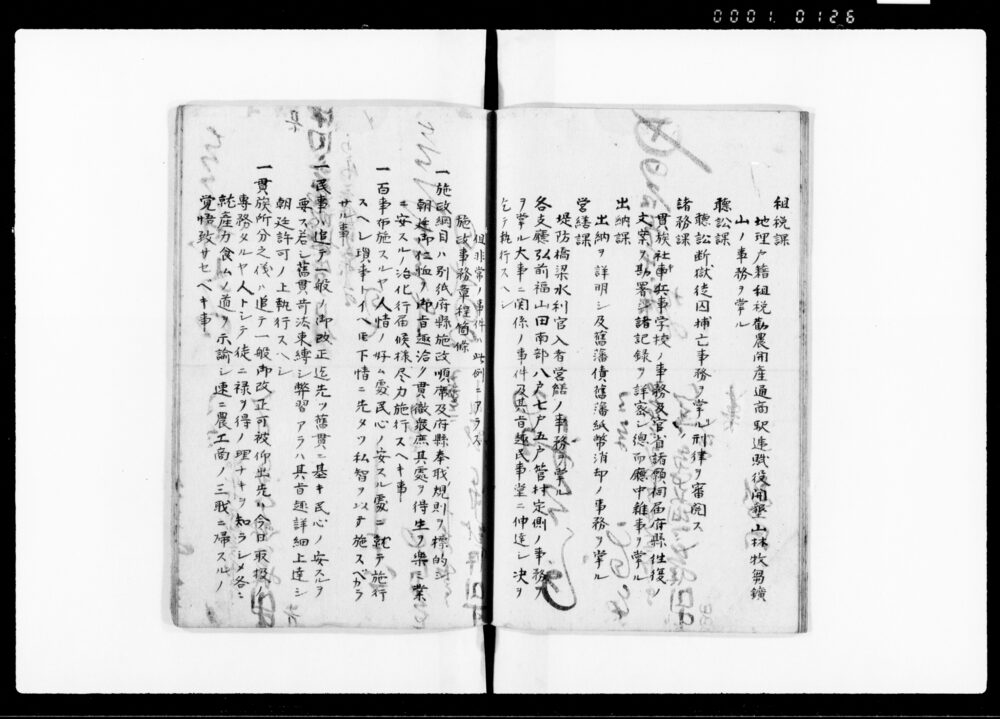 0001 0126
租税課
地理戸籍租税勧農開産通商駅逓賤役開墾山林牧芻鑛
山ノ事務ヲ掌ル
聴訟課
聴訟断獄徒囚捕亡事務ヲ掌ル刑律ヲ審閲ス
諸務課
貫族社事兵事学校ノ事務及官省諸願伺届府縣往復ノ
文案ヲ勘署シ諸記録ヲ詳密シ總而廳中雑事ヲ掌ル
出納課
出納ヲ詳明シ及舊藩債舊藩紙幣消却ノ事務ヲ掌ル
営繕課
堤防橋梁水利官入省営繕ノ事務ヲ掌ル
各支廳弘前福山田南部八戸七戸五戸管村定則ノ事務
ヲ掌ル大事ニ関係ノ事件及其旨趣民事堂ニ伸達シ決ヲ
乞テ執行スヘシ
但非常ノ事件ハ此例ニアラス
施政事務章程箇條
一施政綱目ハ別紙府縣施政順序及府縣奉職規則ヲ標的シ
朝廷御仁恤ノ御旨趣洽ク貫徹衆庶其處ヲ得生ヲ楽ミ業
ニ安スルノ治化行届候様尽力施行スヘキ事
一百事布施スルヤ人情ノ好ム處民心ノ安スル處ニ就テ施行
スヘシ瑣事トイヘ𪜈下情ニ先タツ私智ヲ以テ施スベカラ
サル事
一民事ハ追テ一般ノ御改正迄先ツ舊貫ニ基キ民心ノ安スルヲ
要ス若シ舊貫苛法束縛シ弊習アラハ其旨趣詳細上達シ
朝廷許可ノ上執行スヘシ
一貫族所分之後ハ追テ一般御改正可被仰出先ハ今日取扱ノ
専務タルヤ人トシテ徒ニ禄ヲ得ノ理ナキヲ知ラシメ各ニ
就産力食ムノ道ヲ示諭シ速ニ農工商ノ三職ニ帰スルノ
覚悟致サセベキ事